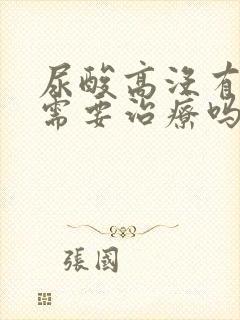 尿酸高没有
需要治療吗
張國